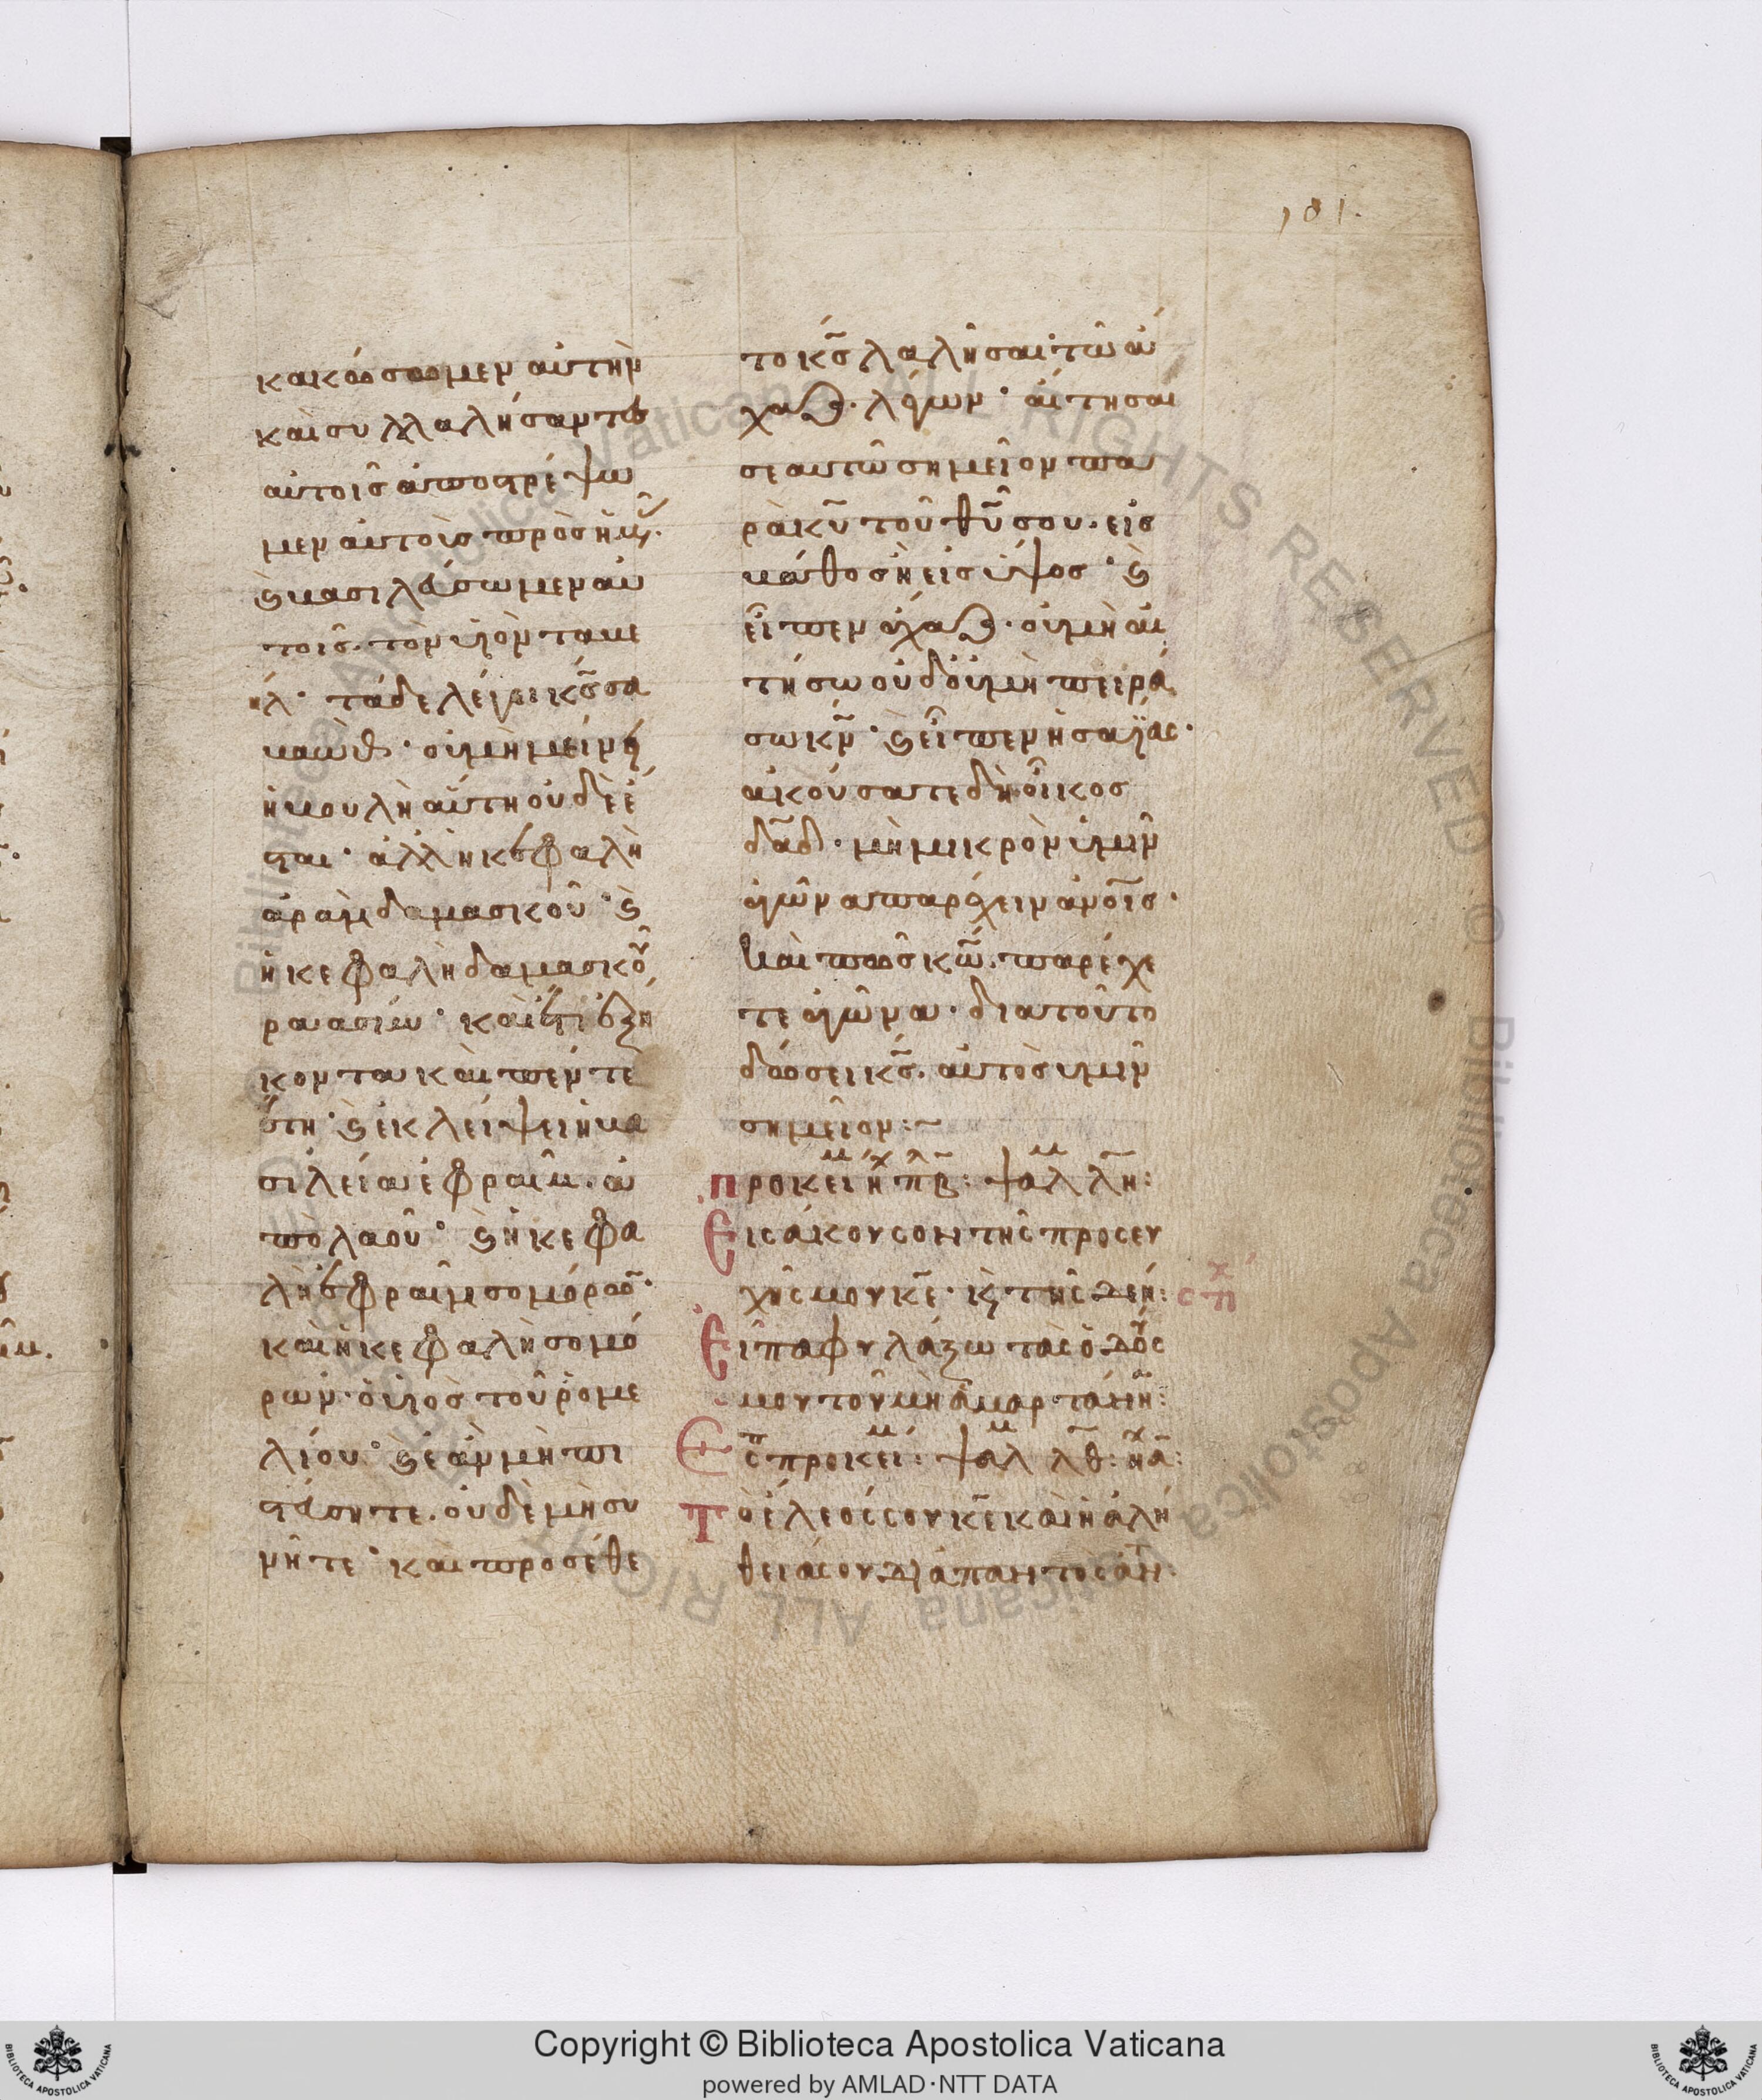 101.
κακώσωμεν αὐτὴν
καὶ συλλαλήσαντες
αὐτοῖς ἀποστρέψω
μεν αὐτοὺς πρὸς ἡμᾶς.
καὶ βασιλεύσωμεν αὐ
τοῖς. τὸν υἱὸν ταβε
ήλ· τάδε λέγει κς σα
βαώθ· οὐ μὴ μείνῃ
ἡ βουλὴ αὕτη οὐδὲ ἔ
σται· ἀλλ' ἡ κεφαλὴ
ἀρὰμ δαμασκοῦ· καὶ
ἡ κεφαλὴ δαμασκοῦ
ραασίμ· καὶ ἔτι ἑξή
κοντα καὶ πέντε
ἔτη· καὶ ἐκλείψει ἡ βα
σιλεία ἐφραὶμ. ἀ
πὸ λαοῦ· καὶ ἡ κεφα
λὴ ἐφραὶμ σομόρων·
καὶ ἡ κεφαλὴ σομό
ρων· ὁ υἱὸς τοῦ ῥομε
λίου· καὶ ἐὰν μὴ πι
στεύσητε. οὐδὲ μὴ συ
νῆτε· καὶ προσέθε
το κς λαλῆσαι τῷ ἄ
χαζ. λέγων· αἴτησαι
σεαυτῷ σημεῖον πα
ρὰ κυ τοῦ θυ σου. εἰς
βάθος ἢ εἰς ὕψος· καὶ
εἶπεν ἄχαζ. οὐ μὴ αἰ
τήσω οὐδ' οὐ μὴ πειρά
σω κν· καὶ εἶπεν ἡσαΐας·
ἀκούσατε δὴ οἶκος
δαδ. μὴ μικρὸν ὑμῖν
ἀγῶνα παρέχειν ἀνοις·
καὶ πῶς κω. παρέχε
τε ἀγῶνα. διατοῦτο
δώσει κς. αὐτὸς ὑμῖν
σημεῖον:~
προκεί ἠχ πλ β: ψαλμ λη:
Εἰσάκουσον τῆς προσευ
χῆς μου κε. καὶ τῆς δεή:
στιχ
Εἶπα φυλάξω τὰς ὁδούς
μου τοῦ μὴ ἁμαρτάνην:
Εσπ προκεί: ψαλμ λθ: ἠχ α:
Τὸ ἔλεός σου κε καὶ ἡ ἀλή
θειά σου διαπαντὸς ἀντ.
Copyright © Biblioteca Apostolica Vaticana
powered by AMLAD·NTT DATA